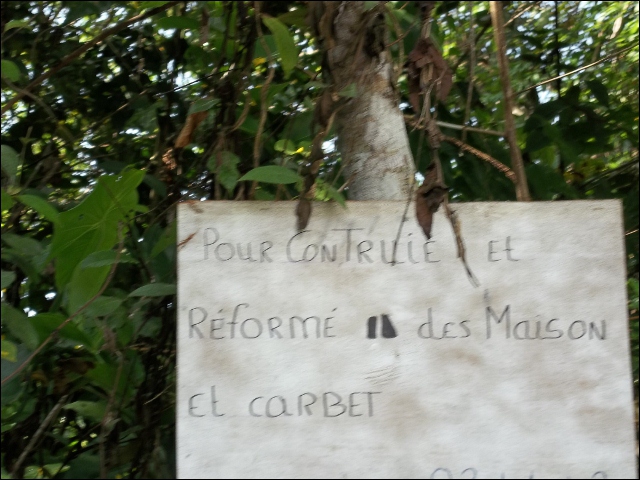 POUR CONTRUIE et
RéfORMÉ des MAISON
Et CARBET